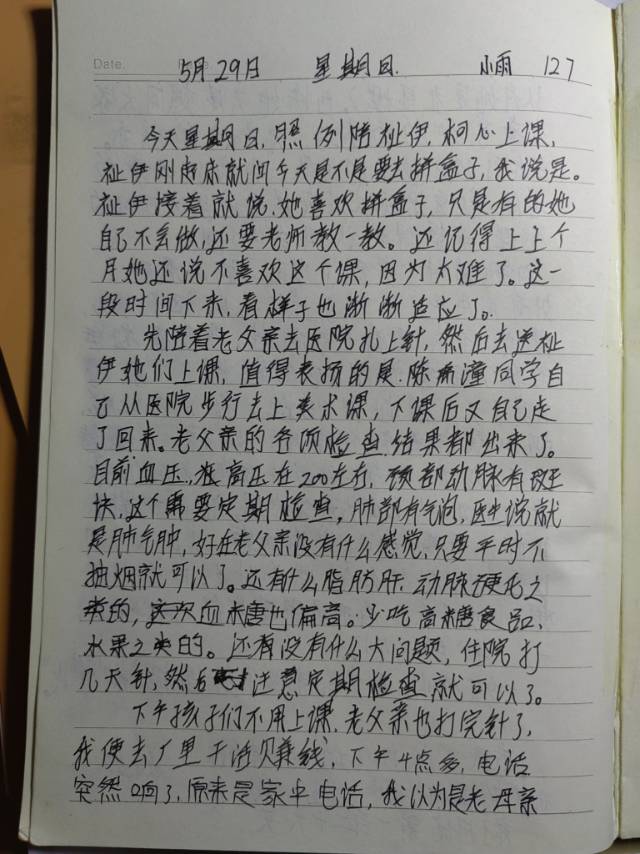 Date.
5月29日 星期日. 小雨 127
今天星期日,照例陪祉伊,柯心上课,
祉伊刚起床就问今天是不是要去拼盒子,我说是。
祉伊接着就说,她喜欢拼盒子,只是有的她
自己不会做,还要老师教一教。还记得上上个
月她还说不喜欢这个课,因为太难了。这一
段时间下来,看样子也渐渐适应了。
先陪着老父亲去医院扎上针,然后去送祉
伊她们上课,值得表扬的是,陈 潼同学自
己从医院步行去上美术课,下课后又自己走
了回来。老父亲的各项检查结果都出来了。
目前血压,低高压在200左右,颈部动脉有斑
块,这个需要定期检查,肺部有气泡,医生说就
是肺气肿,好在老父亲没有什么感觉,只要平时不
抽烟就可以了。还有什么脂肪肝,动脉硬化之
类的,这次血糖也偏高。少吃高糖食品、
水果之类的。还有没有什么大问题,住院打
几天针,然后 注意定期检查就可以了。
下午孩子们不用上课,老父亲也打完针了,
我便去厂里干活赚线,下午4点多,电话
突然响了,原来是家中电话,我以为是老母亲